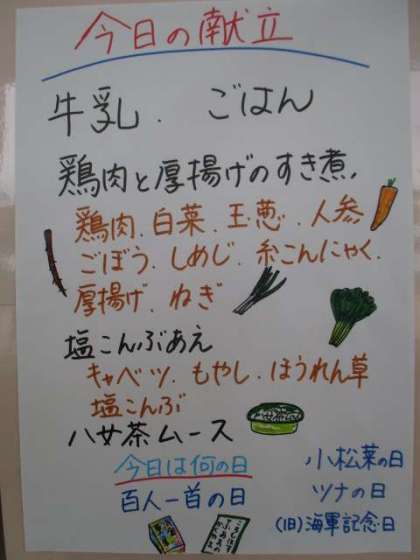 今日の献立
牛乳. ごはん
鶏肉と厚揚げのすき煮
鶏肉. 白菜. 玉葱. 人参
ごぼう. しめじ. 糸こんにゃく.
厚揚げ. ねぎ
塩こんぶあえ
キャベツ. もやし. ほうれん草
塩こんぶ
八女茶ムース
今日は何の日
百人一首の日
小松菜の日
ツナの日
(旧)海軍記念日